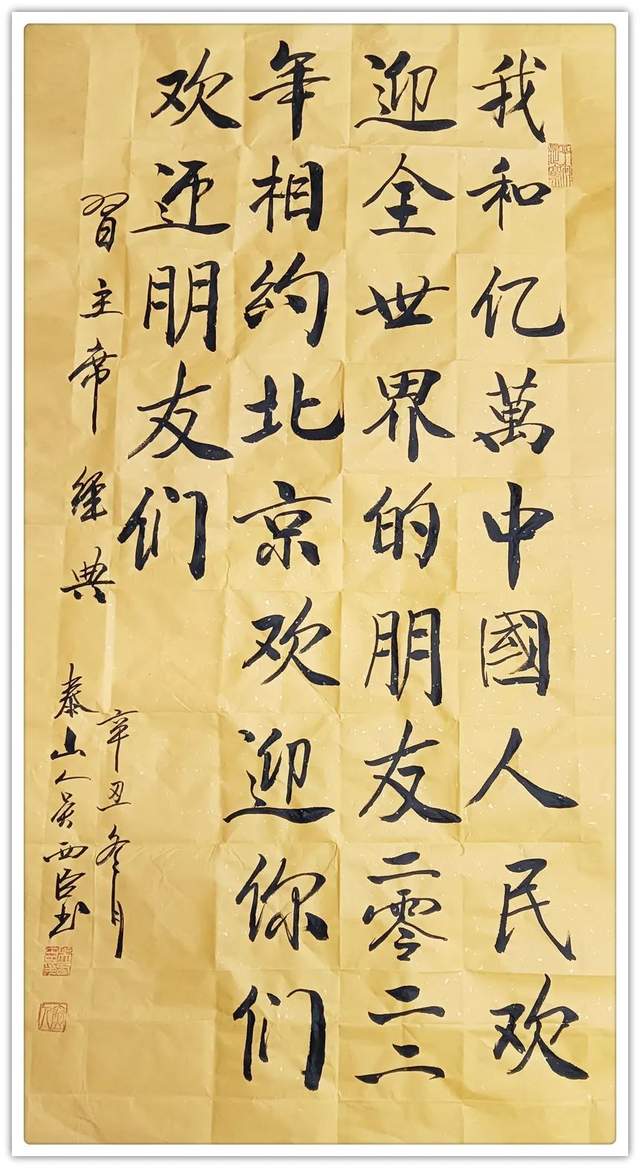 我和亿萬中國人民欢
迎全世界的朋友二零二二
年相约北京欢迎你们
欢迎朋友们
習主席經典
辛丑冬月
泰山人吴西臣书